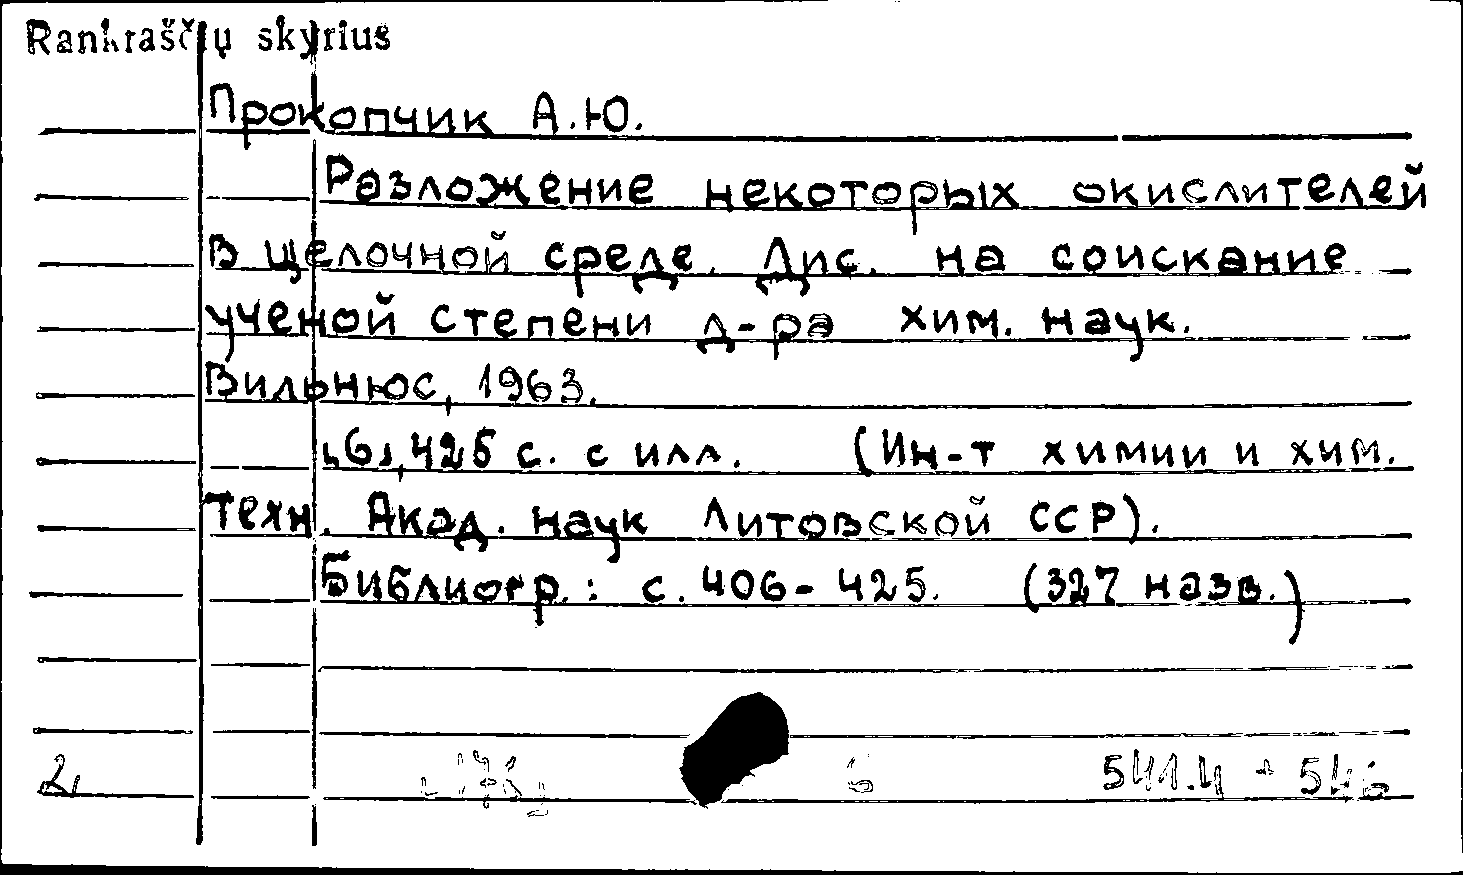 Rankraščių skyrius
Прокопчик А.Ю.
Разложение некоторых окислителей
в щелочной среде. Дис. на соискание
ученой степени д-ра хим. наук.
Вильнюс, 1963.
[6], 425 с. с илл. (Ин-т химии и хим.
техн. Акад. наук Литовской ССР).
Библиогр.: с. 406-425. (327 назв.)
2, 6 541.4 + 546